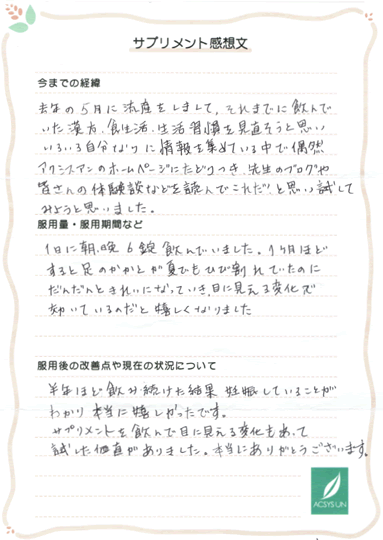 サプリメント感想文
今までの経緯
去年の5月に流産をしまして、それまでに飲んで
いた漢方、食生活、生活習慣を見直そうと思い
いろいろ自分なりに情報を集めている中で偶然
アクシスアンのホームページにたどりつき、先生のブログや
皆さんの体験談などを読んでこれだ!と思い試して
みようと思いました。
服用量・服用期間など
1日に朝、晩6錠飲んでいました。1ヶ月ほど
すると足のかかとが夏でもひび割れていたのに
だんだんときれいになっていき、目に見える変化で
効いているのだと嬉しくなりました
服用後の改善点や現在の状況について
半年ほど飲み続けた結果 妊娠していることが
わかり本当に嬉しかったです。
サプリメントを飲んで目に見える変化もあって
試した価値がありました。本当にありがとうございます。
ACSYSUN